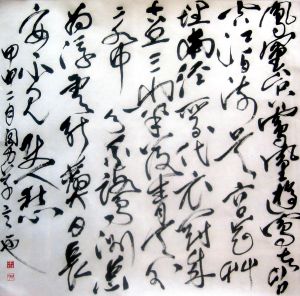 鳳凰台上鳳凰遊鳳去台
空江自流吴宫花草
埋幽径晋代衣冠成
古丘三山半落青天外
二水中分白鹭洲总
为浮云能蔽日長
安不见使人愁
甲申二月